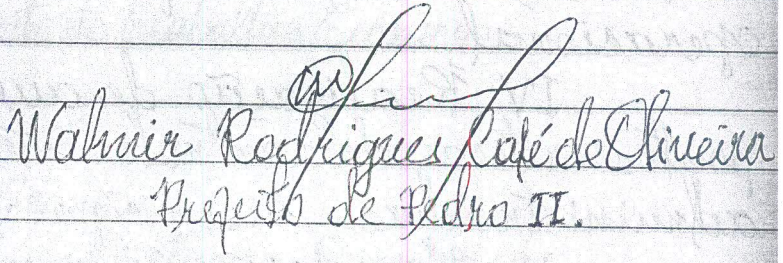 Walmir Rodrigues Café de Oliveira
Prefeito de Pedro II.